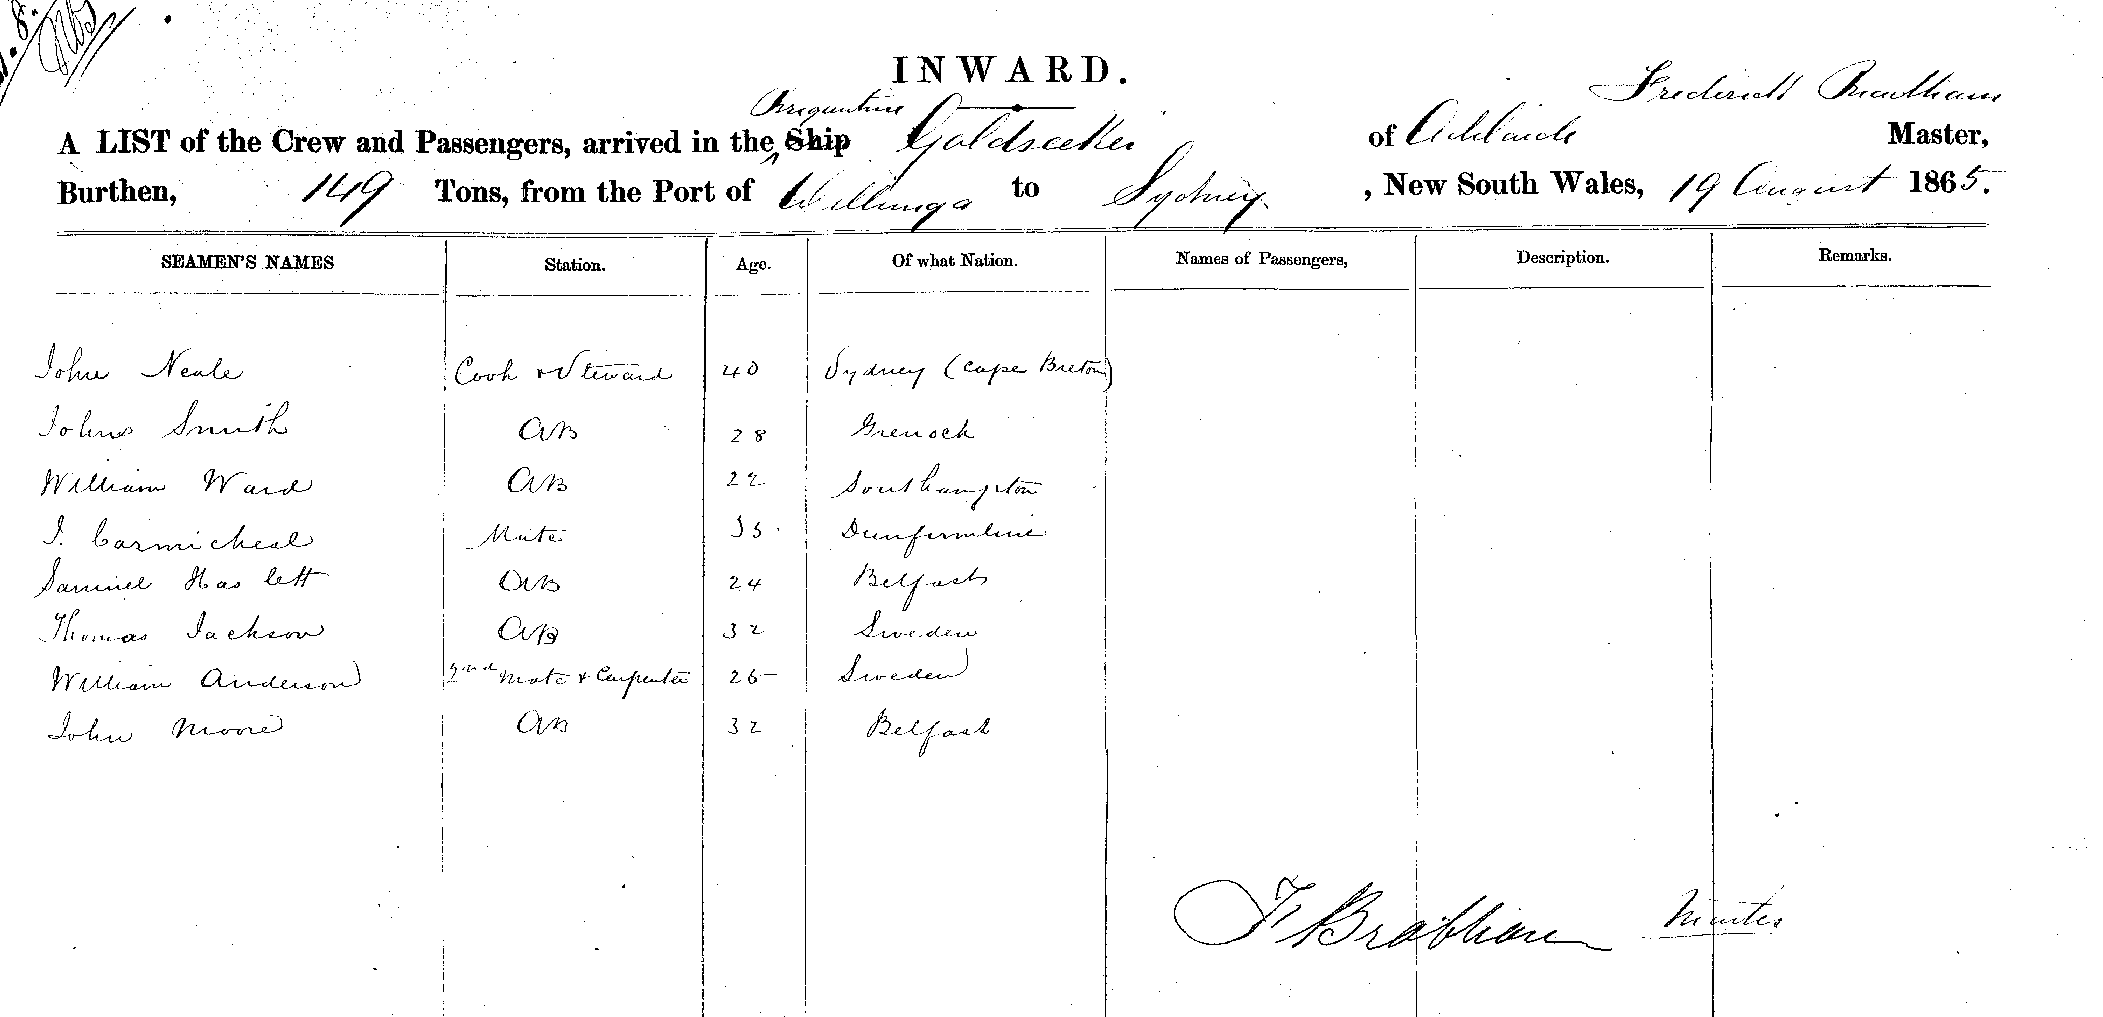 INWARD.
Brigantine Frederick
A LIST of the Crew and Passengers, arrived in the Ship Goldseeker of Adelaide Master,
Burthen, 149 Tons, from the Port of Willunga to Sydney , New South Wales, 19 August 1865.
SEAMEN'S NAMES Station. Age. Of what Nation. Names of Passengers, Description. Remarks.
John Neale Cook & Steward 40 Sydney (Cape Breton)
John Smith AB 28 Grenock
William Ward AB 22 Southampton
J. Carmicheal Mate 35 Dunfirmline
Samuel Haslett AB 24 Belfast
Thomas Jackson AB 32 Sweden
William Anderson 2nd Mate & Carpenter 25 Sweden
John Moore AB 32 Belfast
F Brabham Master